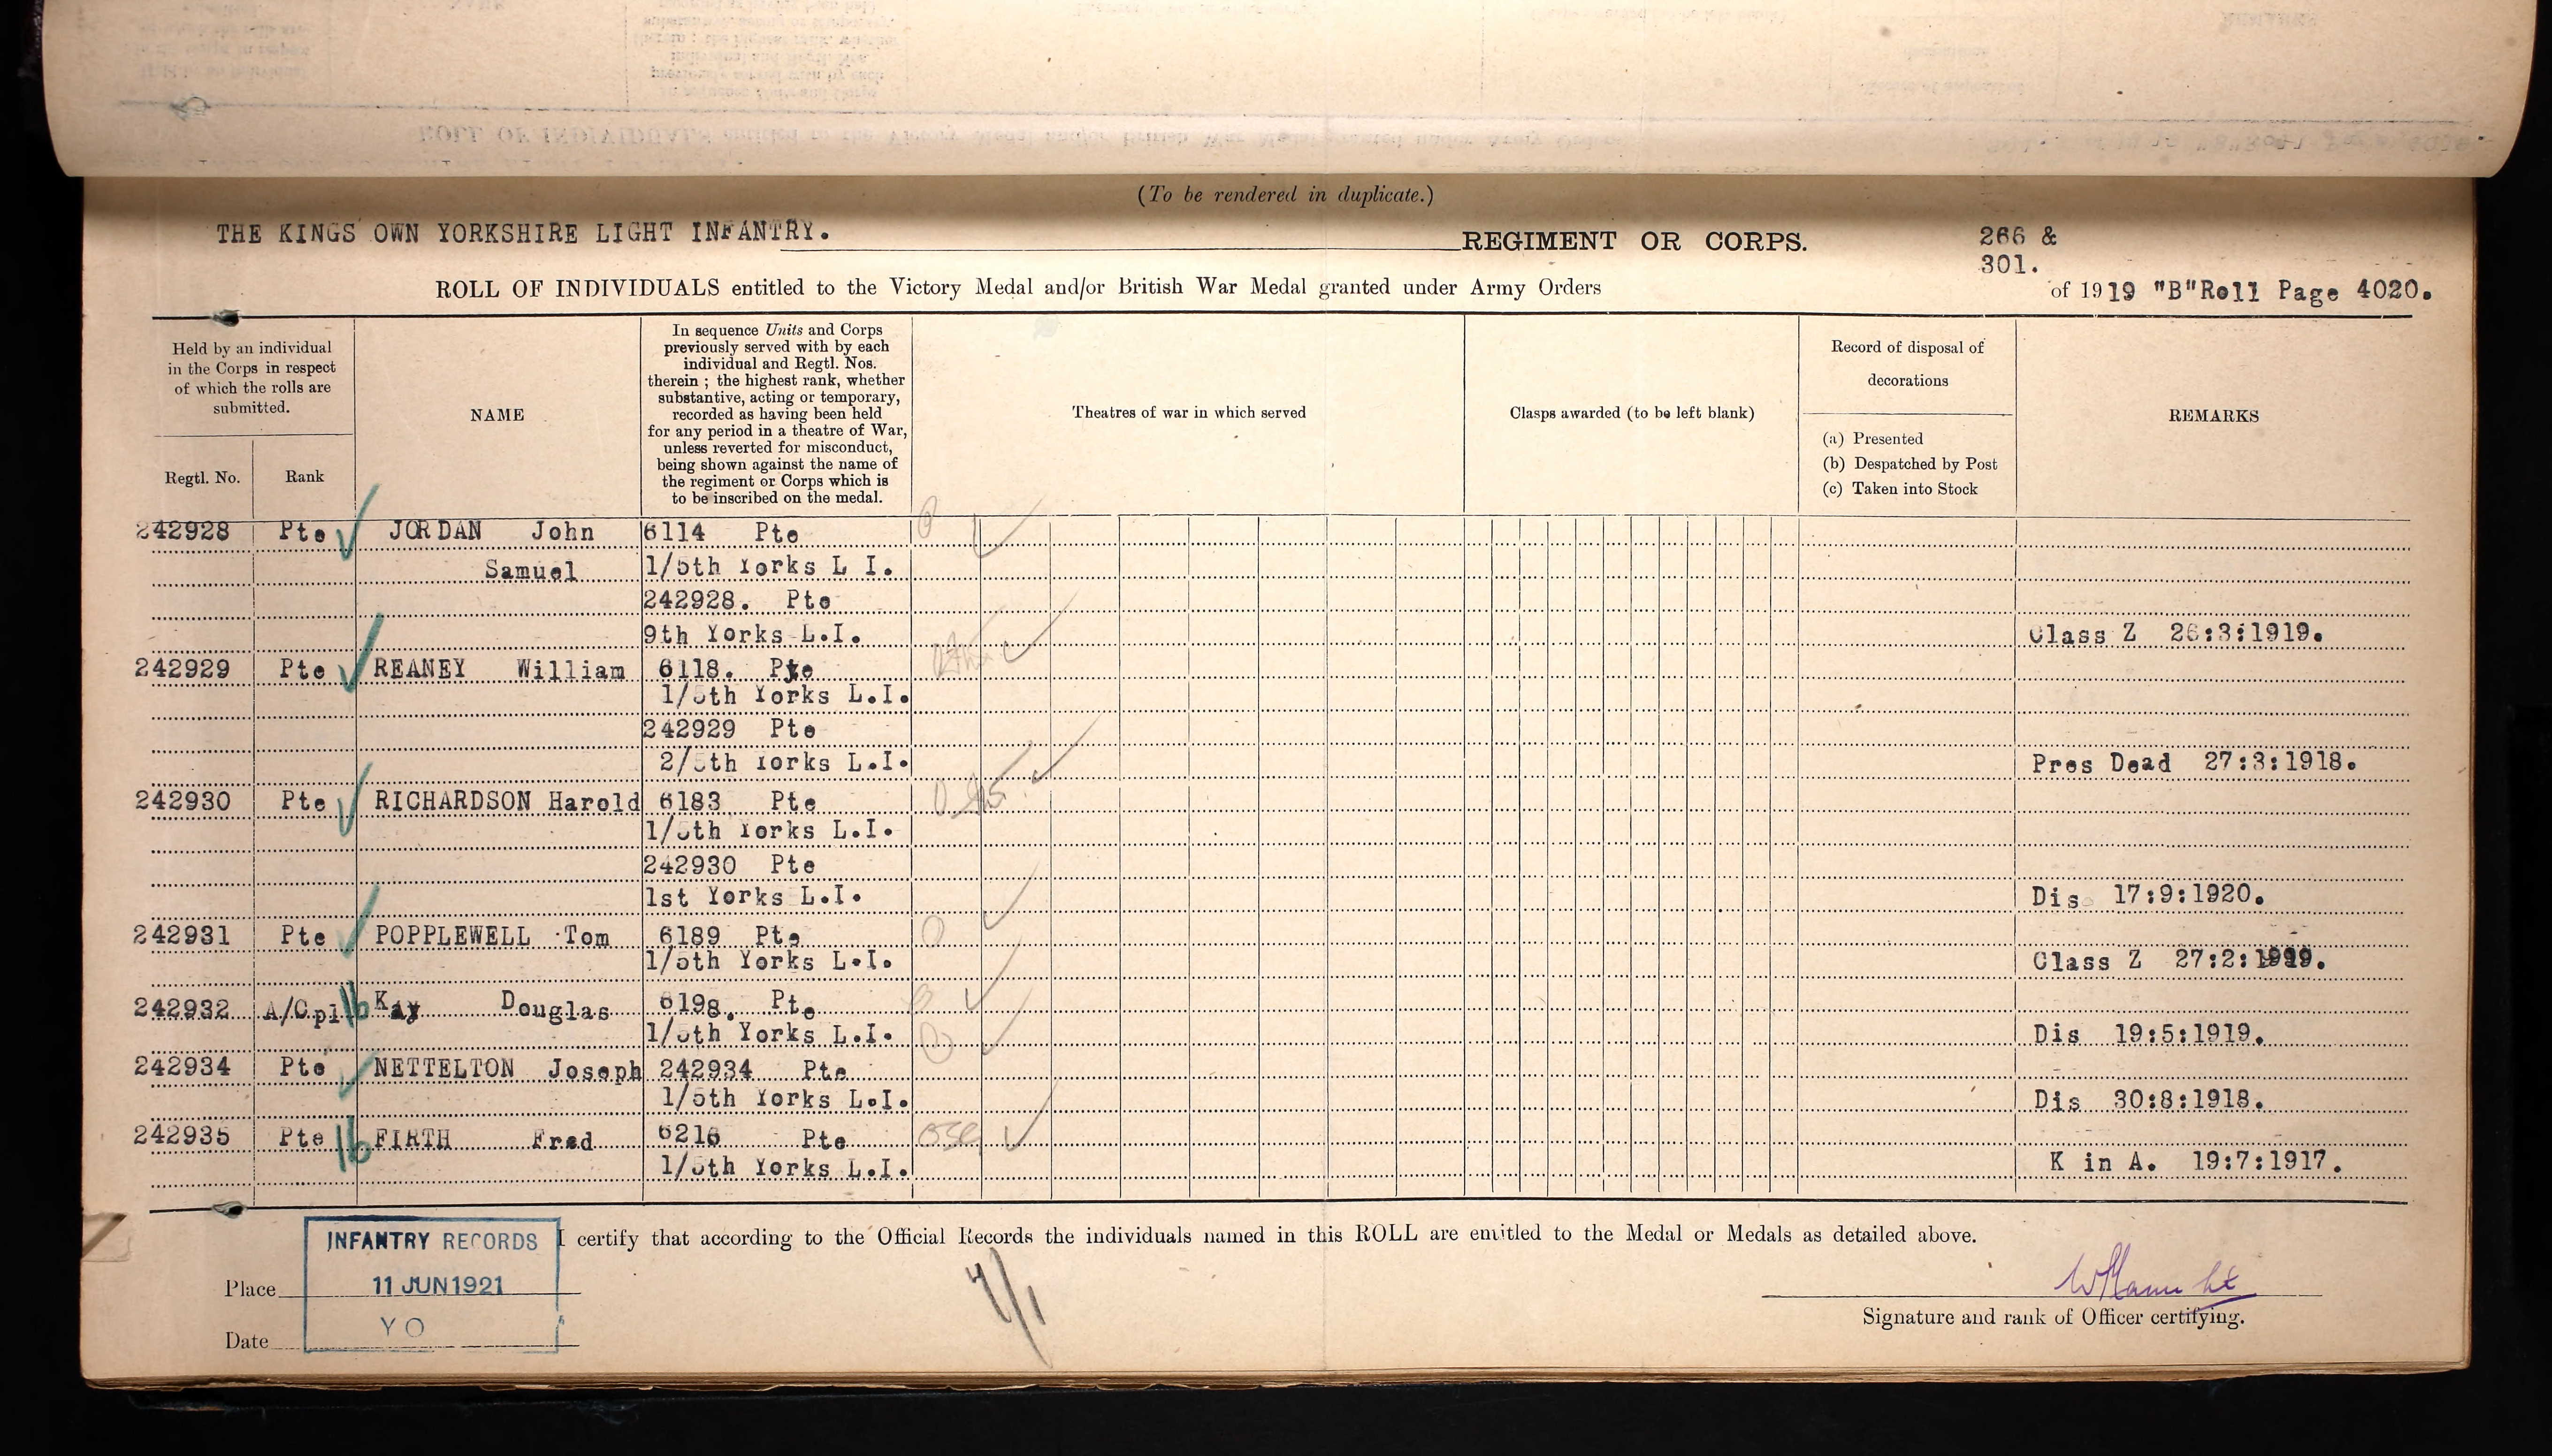 (To be rendered in duplicate.)
THE KINGS OWN YORKSHIRE LIGHT INFANTRY. REGIMENT OR CORPS. 266 &
301.
ROLL OF INDIVIDUALS entitled to the Victory Medal and/or British War Medal granted under Army Orders of 1919 "B"Roll Page 4020.
Held by an individual
in the Corps in respect
of which the rolls are
submitted.
Regtl. No. Rank
NAME
In sequence Units and Corps
previously served with by each
individual and Regtl. Nos.
therein ; the highest rank, whether
substantive, acting or temporary,
recorded as having been held
for any period in a theatre of War,
unless reverted for misconduct,
being shown against the name of
the regiment or Corps which is
to be inscribed on the medal.
Theatres of war in which served
Clasps awarded (to be left blank)
Record of disposal of
decorations
(a) Presented
(b) Despatched by Post
(c) Taken into Stock
REMARKS
242928 Pte JORDAN John 6114 Pte
Samuel 1/5th Yorks L I.
242928. Pte
9th Yorks L.I. Class Z 26:3:1919.
242929 Pte REANEY William 6118. Pte
1/5th Yorks L.I.
242929 Pte
2/5th Yorks L.I. Pres Dead 27:3:1918.
242930 Pte RICHARDSON Harold 6183 Pte
1/5th Yorks L.I.
242930 Pte
1st Yorks L.I. Dis 17:9:1920.
242931 Pte POPPLEWELL Tom 6189 Pte
1/5th Yorks L.I. Class Z 27:2:1919.
242932 A/Cpl Kay Douglas 6198. Pte
1/5th Yorks L.I. Dis 19:5:1919.
242934 Pte NETTELTON Joseph 242934 Pte
1/5th Yorks L.I. Dis 30:8:1918.
242935 Pte FIRTH Fred 6216 Pte
1/5th Yorks L.I. K in A. 19:7:1917.
I certify that according to the Official Records the individuals named in this ROLL are entitled to the Medal or Medals as detailed above.
INFANTRY RECORDS
Place 11 JUN 1921
Date YO
Signature and rank of Officer certifying.